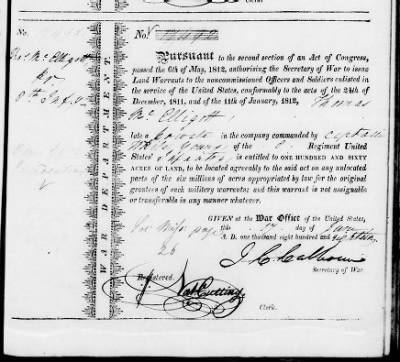 No.
Thos. McElligott
8th Inf.
WAR DEPARTMENT.
No.
Pursuant to the second section of an Act of Congress,
passed the 6th of May, 1812, authorising the Secretary of War to issue
Land Warrants to the noncommissioned Officers and Soldiers enlisted in
the service of the United States, conformably to the acts of the 24th of
December, 1811, and of the 11th of January, 1812, Thomas
McElligott,
late a private in the company commanded by captain
Young of the 8 Regiment United
States' Infantry, is entitled to ONE HUNDRED AND SIXTY
ACRES OF LAND, to be located agreeably to the said act on any unlocated
parts of the six millions of acres appropriated by law for the original
grantees of such military warrants; and this warrant is not assignable
or transferable in any manner whatever.
GIVEN at the War Office of the United States,
this 17 day of
A. D. one thousand eight hundred and
J. C. Calhoun
Secretary of War.
See page
26
Registered.
Nat Cutting,
Clerk.